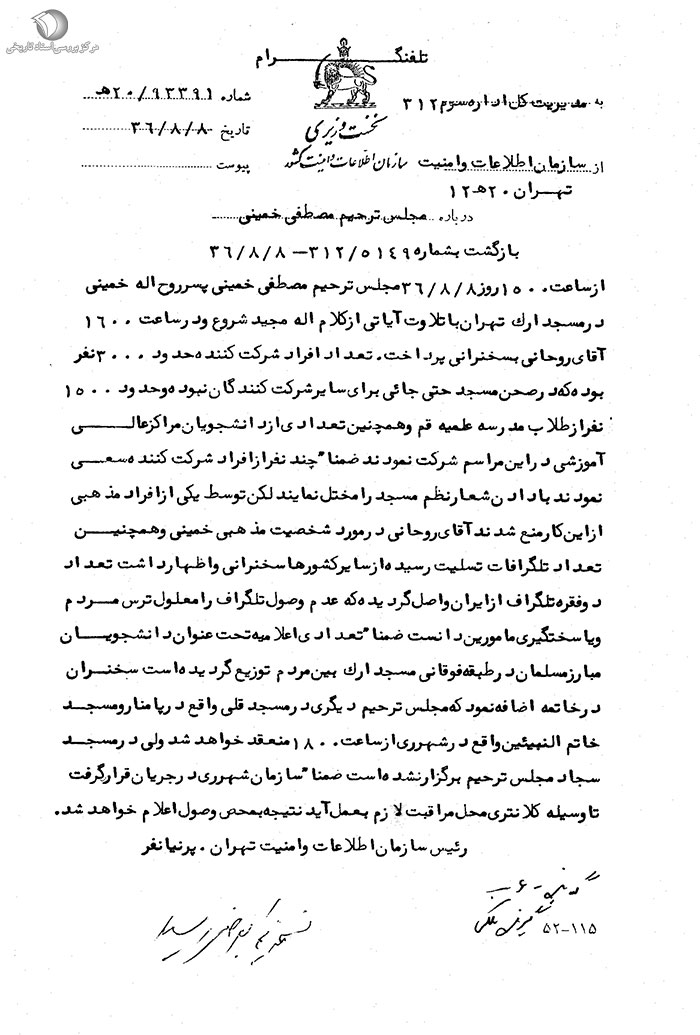 مرکز بررسی اسناد تاریخی
تلفنگرام
به مدیریت کل اداره سوم ۳۱۲
شماره ۲۰/۹۳۳۹۱ه
نخست وزیری
تاریخ ۳۶/۸/۸
از سازمان اطلاعات وامنیت
سازمان اطلاعات و امنیت کشور
پیوست
تهران ۲۰ه۱۲
درباره مجلس ترحیم مصطفی خمینی
بازگشت بشماره ۳۱۲/۵۱۴۹ — ۳۶/۸/۸
ازساعت ۱۵۰۰ روز ۳۶/۸/۸ مجلس ترحیم مصطفی خمینی پسرروح اله خمینی
درمسجد ارك تهران با تلاوت آیاتی ازکلام اله مجید شروع ودرساعت ۱۶۰۰
آقای روحانی بسخنرانی پرداخت. تعداد افراد شرکت کننده حدود ۳۰۰۰ نفر
بوده که درصحن مسجد حتی جائی برای سایرشرکت کنندگان نبوده وحدود ۱۵۰۰
نفرازطلاب مدرسه علمیه قم وهمچنین تعدادی ازدانشجویان مراکزعالی
آموزشی دراین مراسم شرکت نمودند ضمنا" چند نفرازافراد شرکت کننده سعی
نمودند بادادن شعارنظم مسجد را مختل نمایند لکن توسط یکی ازافراد مذهبی
ازاین کارمنع شدند آقای روحانی درمورد شخصیت مذهبی خمینی وهمچنین
تعداد تلگرافات تسلیت رسیده ازسایرکشورها سخنرانی واظهارداشت تعداد
دوفقره تلگراف ازایران واصل گردیده که عدم وصول تلگراف را معلول ترس مردم
ویاسختگیری مامورین دانست ضمنا" تعدادی اعلامیه تحت عنوان دانشجویان
مبارزمسلمان درطبقه فوقانی مسجد ارك بین مردم توزیع گردیده است سخنران
درخاتمه اضافه نمود که مجلس ترحیم دیگری درمسجد قلی واقع درپامنارومسجد
خاتم النبیئین واقع درشهرری ازساعت ۱۸۰۰ منعقد خواهد شد ولی درمسجد
سجاد مجلس ترحیم برگزارنشده است ضمنا" سازمان شهرری درجریان قرارگرفت
تا وسیله کلانتری محل مراقبت لازم بعمل آید نتیجه بمحض وصول اعلام خواهد شد.
رئیس سازمان اطلاعات وامنیت تهران . پرنیانفر
۵۲-۱۱۵